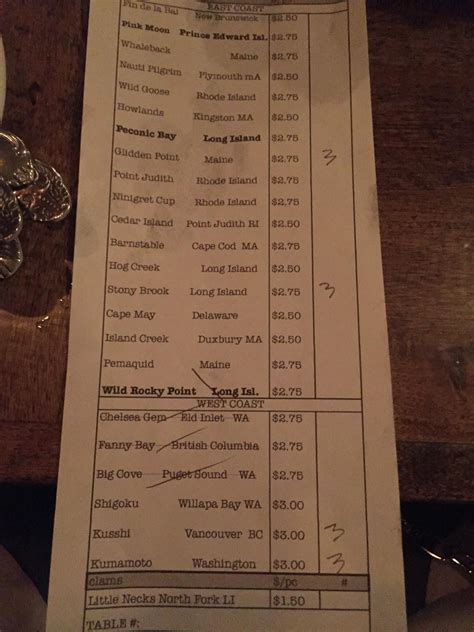 EAST COAST
Fin de la Bai New Brunswick $2.50
Pink Moon Prince Edward Isl. $2.75
Whaleback Maine $2.75
Nauti Pilgrim Plymouth mA $2.50
Wild Goose Rhode Island $2.75
Howlands Kingston MA $2.50
Peconic Bay Long Island $2.75
Glidden Point Maine $2.75 3
Point Judith Rhode Island $2.50
Ninigret Cup Rhode Island $2.75
Cedar Island Point Judith RI $2.50
Barnstable Cape Cod MA $2.75
Hog Creek Long Island $2.50
Stony Brook Long Island $2.75 3
Cape May Delaware $2.50
Island Creek Duxbury MA $2.50
Pemaquid Maine $2.75
Wild Rocky Point Long Isl. $2.75
WEST COAST
Chelsea Gem Eld Inlet WA $2.75
Fanny Bay British Columbia $2.75
Big Cove Puget Sound WA $2.75
Shigoku Willapa Bay WA $3.00
Kusshi Vancouver BC $3.00 3
Kumamoto Washington $3.00 3
clams $/pc #
Little Necks North Fork LI $1.50
TABLE #: